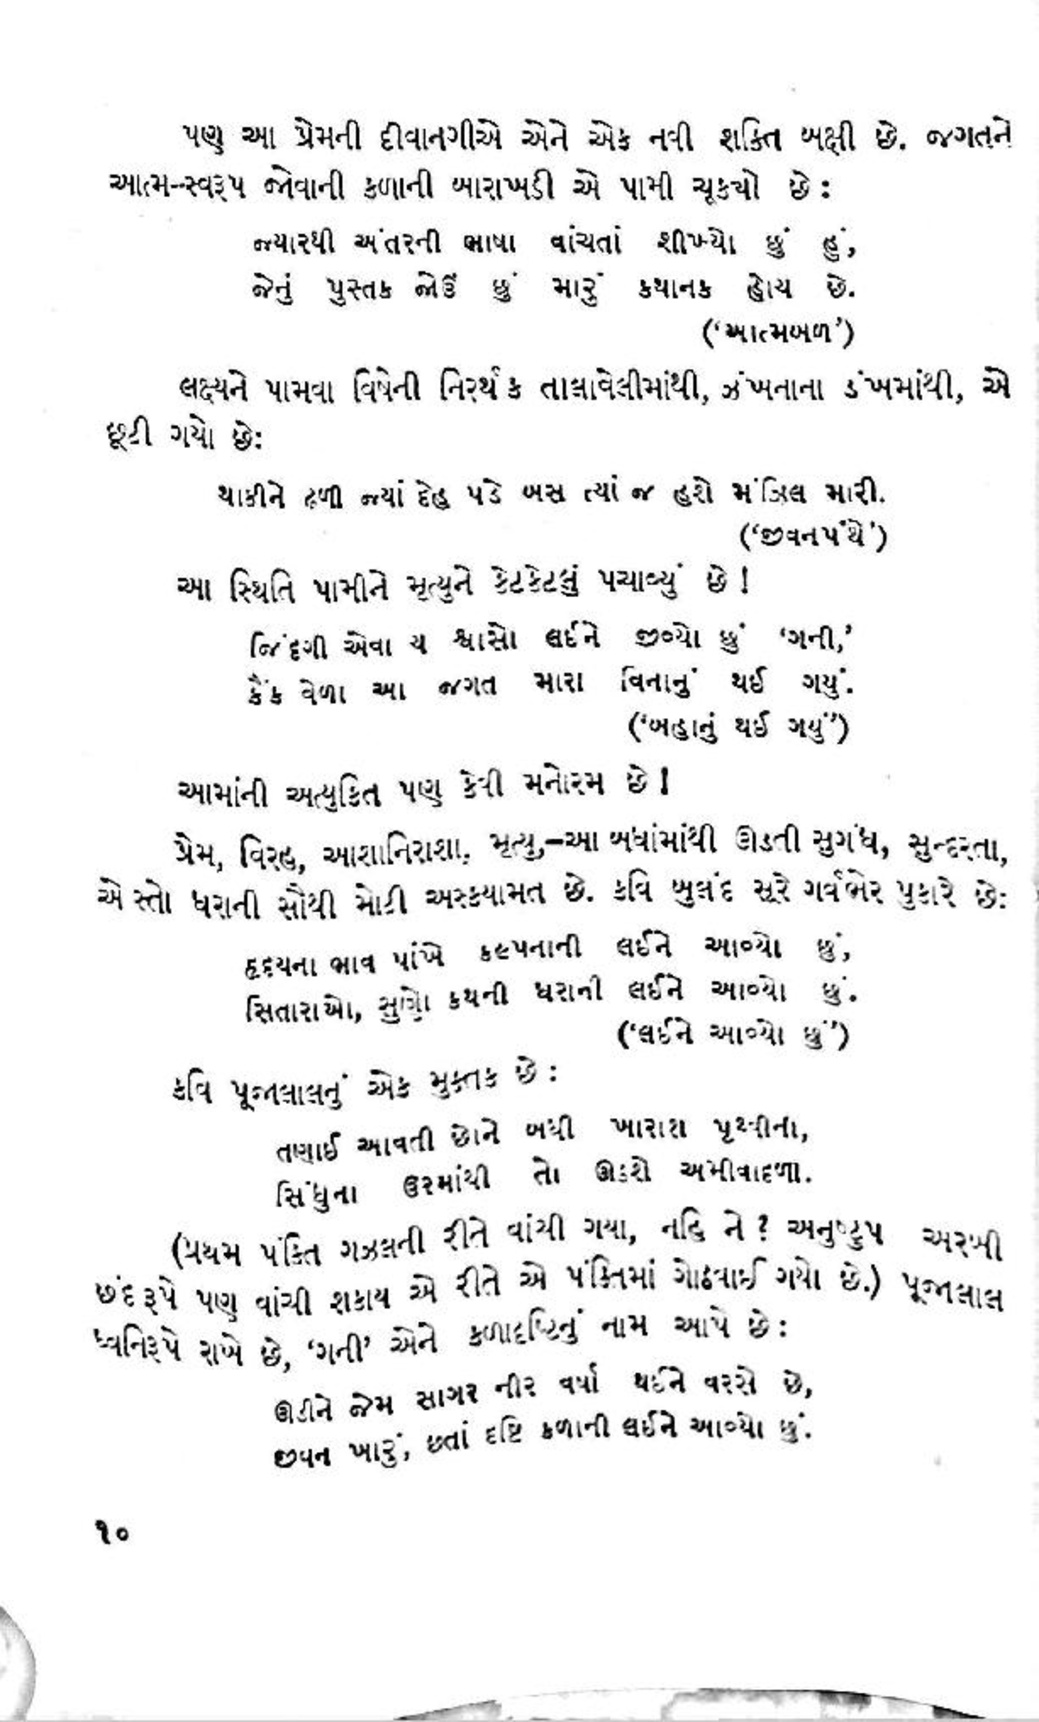 પણ આ પ્રેમની દીવાનગીએ એને એક નવી શક્તિ બક્ષી છે. જગતને
આત્મ-સ્વરૂપ જોવાની કળાની બારાખડી એ પામી ચૂક્યો છે :
જ્યારથી અંતરની ભાષા વાંચતાં શીખ્યો છું હું,
જેનું પુસ્તક જોઉં છું મારું કથાનક હોય છે.
(‘આત્મબળ’)
લક્ષ્યને પામવા વિષેની નિરર્થક તાલાવેલીમાંથી, ઝંખનાના ડંખમાંથી, એ
છૂટી ગયો છે:
થાકીને ઢળી જ્યાં દેહ પડે બસ ત્યાં જ હશે મંઝિલ મારી.
(‘જીવનપંથે’)
આ સ્થિતિ પામીને મૃત્યુને કેટકેટલું પચાવ્યું છે !
જિંદગી એવા ય શ્વાસો લઈને જીવ્યો છું ‘ગની,’
કૈંક વેળા આ જગત મારા વિનાનું થઈ ગયું.
(‘બહાનું થઈ ગયું’)
આમાંની અત્યુકિત પણ કેવી મનોરમ છે !
પ્રેમ, વિરહ, આશાનિરાશા, મૃત્યુ,–આ બધાંમાંથી ઊડતી સુગંધ, સુન્દરતા,
એ સ્તો ધરાની સૌથી મોટી અસ્ક્યામત છે. કવિ બુલંદ સૂરે ગર્વભેર પુકારે છે:
હૃદયના ભાવ પાંખે કલ્પનાની લઈને આવ્યો છું,
સિતારાઓ, સુણો કથની ધરાની લઈને આવ્યો છું.
(‘લઈને આવ્યો છું’)
કવિ પૂજાલાલનું એક મુક્તક છે :
તણાઈ આવતી છોને બધી ખારાશ પૃથ્વીની,
સિંધુના ઉરમાંથી તો ઊઠશે અમીવાદળી.
(પ્રથમ પંક્તિ ગઝલની રીતે વાંચી ગયા, નહિ ને ? અનુષ્ટુપ અરબી
છંદરૂપે પણ વાંચી શકાય એ રીતે એ પંક્તિમાં ગોઠવાઈ ગયો છે.) પૂજાલાલ
ધ્વનિરૂપે રાખે છે, ‘ગની’ એને કળાદૃષ્ટિનું નામ આપે છે :
ઊડીને જેમ સાગર નીર વર્ષા થઈને વરસે છે,
જીવન ખારું, છતાં દૃષ્ટિ કળાની લઈને આવ્યો છું.
૧૦